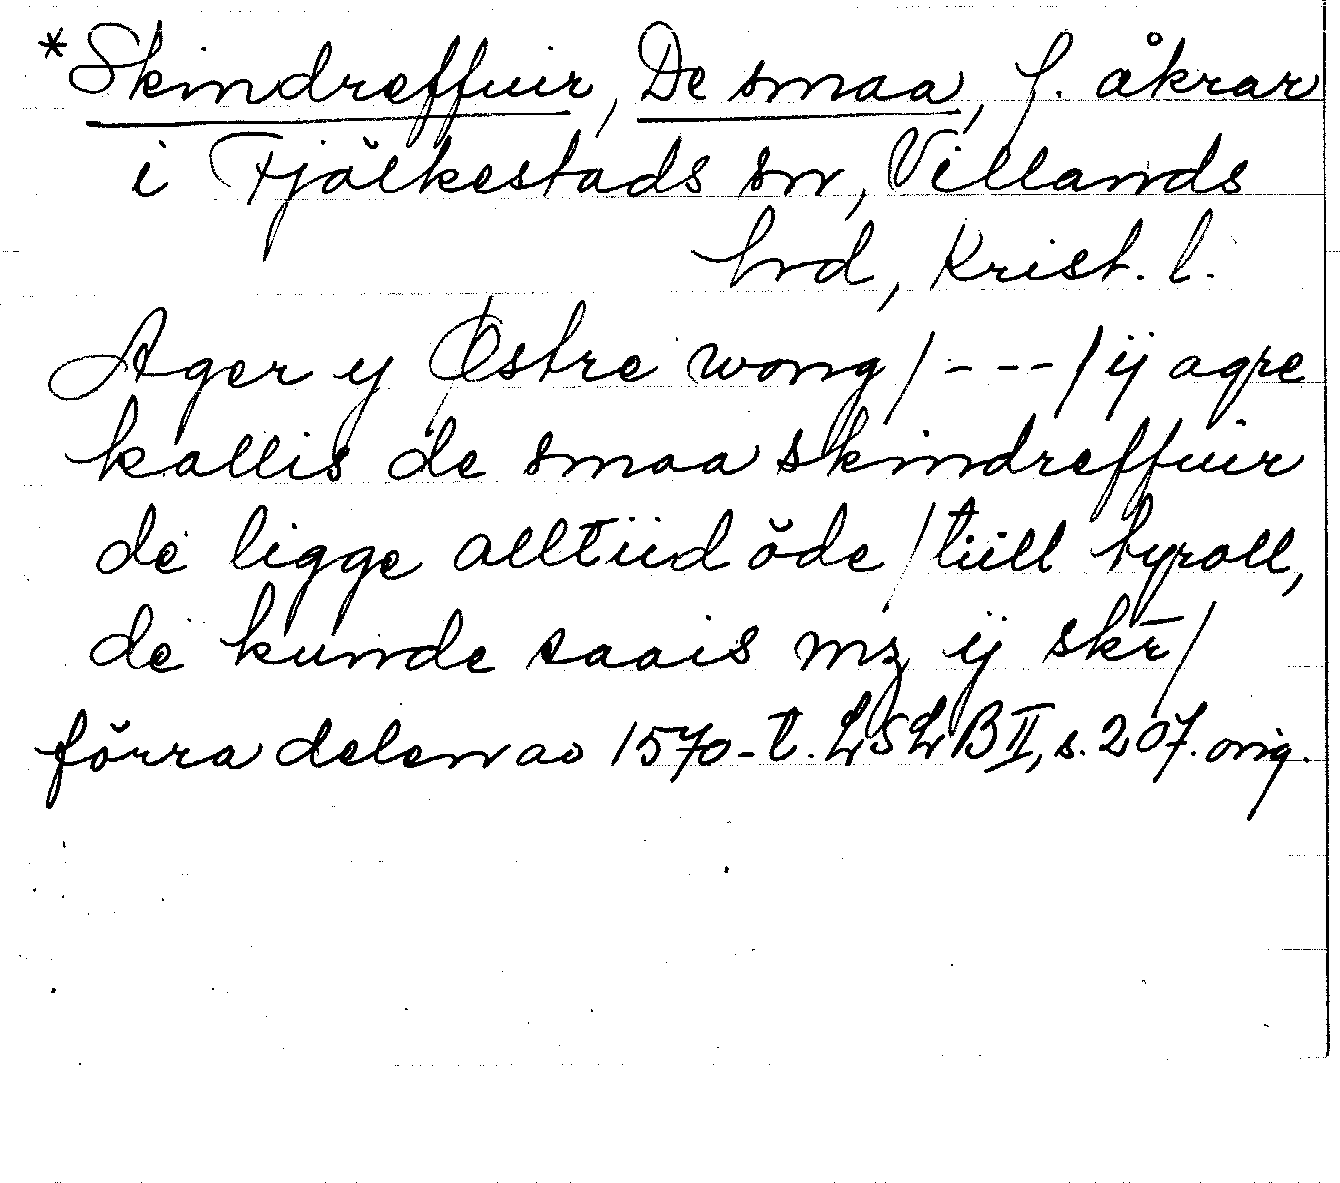 *Skindreffuir, De smaa, f. åkrar
i Fjälkestads sn, Villands
hrd, Krist. l.
Ager y Østre wong /---/ ij agre
kallis de smaa skindreffuir
de ligge alltiid öde / tiill hyroll,
de kunde saais mz ij skr̄ /
förra delen av 1570-t. LSLB II, s. 207. orig.